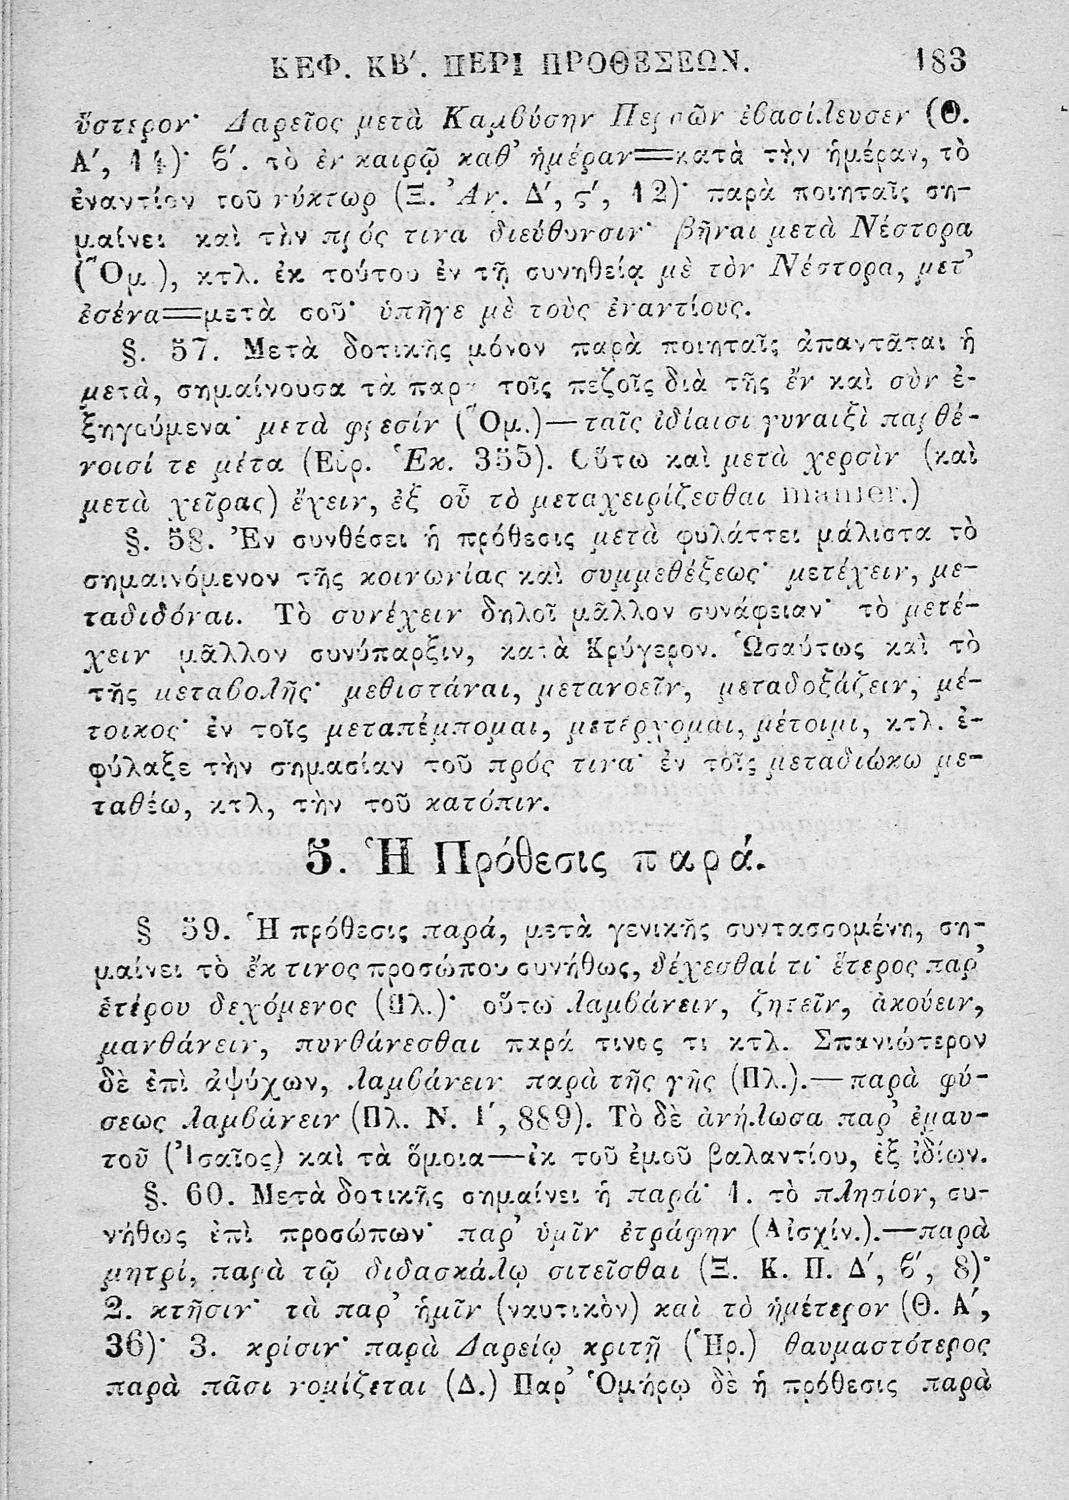 ΚΕΦ. ΚΒ΄. ΠΕΡΙ ΠΡΟΘΕΣΕΩΝ. 183
ὕστερον· Δαρεῖος μετὰ Καμβύσην Περσῶν ἐβασίλευσεν (Θ.
Α΄, 14)· ϐ΄. τὸ ἐν καιρῷ καθ᾽ ἡμέραν=κατὰ τὴν ἡμέραν, τὸ
ἐναντίον τοῦ νύκτωρ (Ξ. Ἀν. Δ΄, ς΄, 12)· παρὰ ποιηταῖς ση-
μαίνει καὶ τὴν πρός τινα διεύθυνσιν· βῆναι μετὰ Νέστορα
(Ὅμ.), κτλ. ἐκ τούτου ἐν τῇ συνηθείᾳ μὲ τὸν Νέστορα, μετ᾽
ἐσένα=μετὰ σοῦ· ὑπῆγε μὲ τοὺς ἐναντίους.
§. 57. Μετὰ δοτικῆς μόνον παρὰ ποιηταῖς ἀπαντᾶται ἡ
μετά, σημαίνουσα τὰ παρὰ τοῖς πεζοῖς διὰ τῆς ἔν καὶ σὺν ἐ-
ξηγούμενα· μετὰ φρεσίν (Ὅμ.)—ταῖς ἰδίαισι γυναιξὶ παρθέ-
νοισί τε μέτα (Εὐρ. Ἑκ. 355). Οὕτω καὶ μετὰ χερσὶν (καὶ
μετὰ χεῖρας) ἔχειν, ἐξ οὗ τὸ μεταχειρίζεσθαι manier.)
§. 58. Ἐν συνθέσει ἡ πρόθεσις μετὰ φυλάττει μάλιστα τὸ
σημαινόμενον τῆς κοινωνίας καὶ συμμεθέξεως· μετέχειν, με-
ταδιδόναι. Τὸ συνέχειν δηλοῖ μᾶλλον συνάφειαν· τὸ μετέ-
χειν μᾶλλον συνύπαρξιν, κατὰ Κρύγερον. Ὡσαύτως καὶ τὸ
τῆς μεταβολῆς· μεθιστάναι, μετανοεῖν, μεταδοξάζειν, μέ-
τοικος· ἐν τοῖς μεταπέμπομαι, μετέρχομαι, μέτοιμι, κτλ. ἐ-
φύλαξε τὴν σημασίαν τοῦ πρός τινα· ἐν τοῖς μεταδιώκω με-
ταθέω, κτλ, τὴν τοῦ κατόπιν.
5. Ἡ Πρόθεσις παρά.
§ 59. Ἡ πρόθεσις παρά, μετὰ γενικῆς συντασσομένη, ση-
μαίνει τὸ ἔκ τινος προσώπου συνήθως, δέχεσθαί τι· ἕτερος παρ᾽
ἑτέρου δεχόμενος (Πλ.)· οὕτω λαμβάνειν, ζητεῖν, ἀκούειν,
μανθάνειν, πυνθάνεσθαι παρά τινος τι κτλ. Σπανιώτερον
δὲ ἐπὶ ἀψύχων, λαμβάνειν παρὰ τῆς γῆς (Πλ.).—παρὰ φύ-
σεως λαμβάνειν (Πλ. Ν. Ι΄, 889). Τὸ δὲ ἀνήλωσα παρ᾽ ἐμαυ-
τοῦ (Ἰσαῖος) καὶ τὰ ὅμοια—ἐκ τοῦ ἐμοῦ βαλαντίου, ἐξ ἰδίων.
§. 60. Μετὰ δοτικῆς σημαίνει ἡ παρά· 1. τὸ πλησίον, συ-
νήθως ἐπὶ προσώπων· παρ᾽ ὑμῖν ἐτράφην (Αἰσχίν.).—παρὰ
μητρί, παρὰ τῷ διδασκάλῳ σιτεῖσθαι (Ξ. Κ. Π. Δ΄, ϐ΄, 8)·
2. κτῆσιν· τὰ παρ᾽ ἡμῖν (ναυτικὸν) καὶ τὸ ἡμέτερον (Θ. Α΄,
36)· 3. κρίσιν· παρὰ Δαρείῳ κριτῇ (Ἡρ.) θαυμαστότερος
παρὰ πᾶσι νομίζεται (Δ.) Παρ᾽ Ὁμήρῳ δὲ ἡ πρόθεσις παρὰ